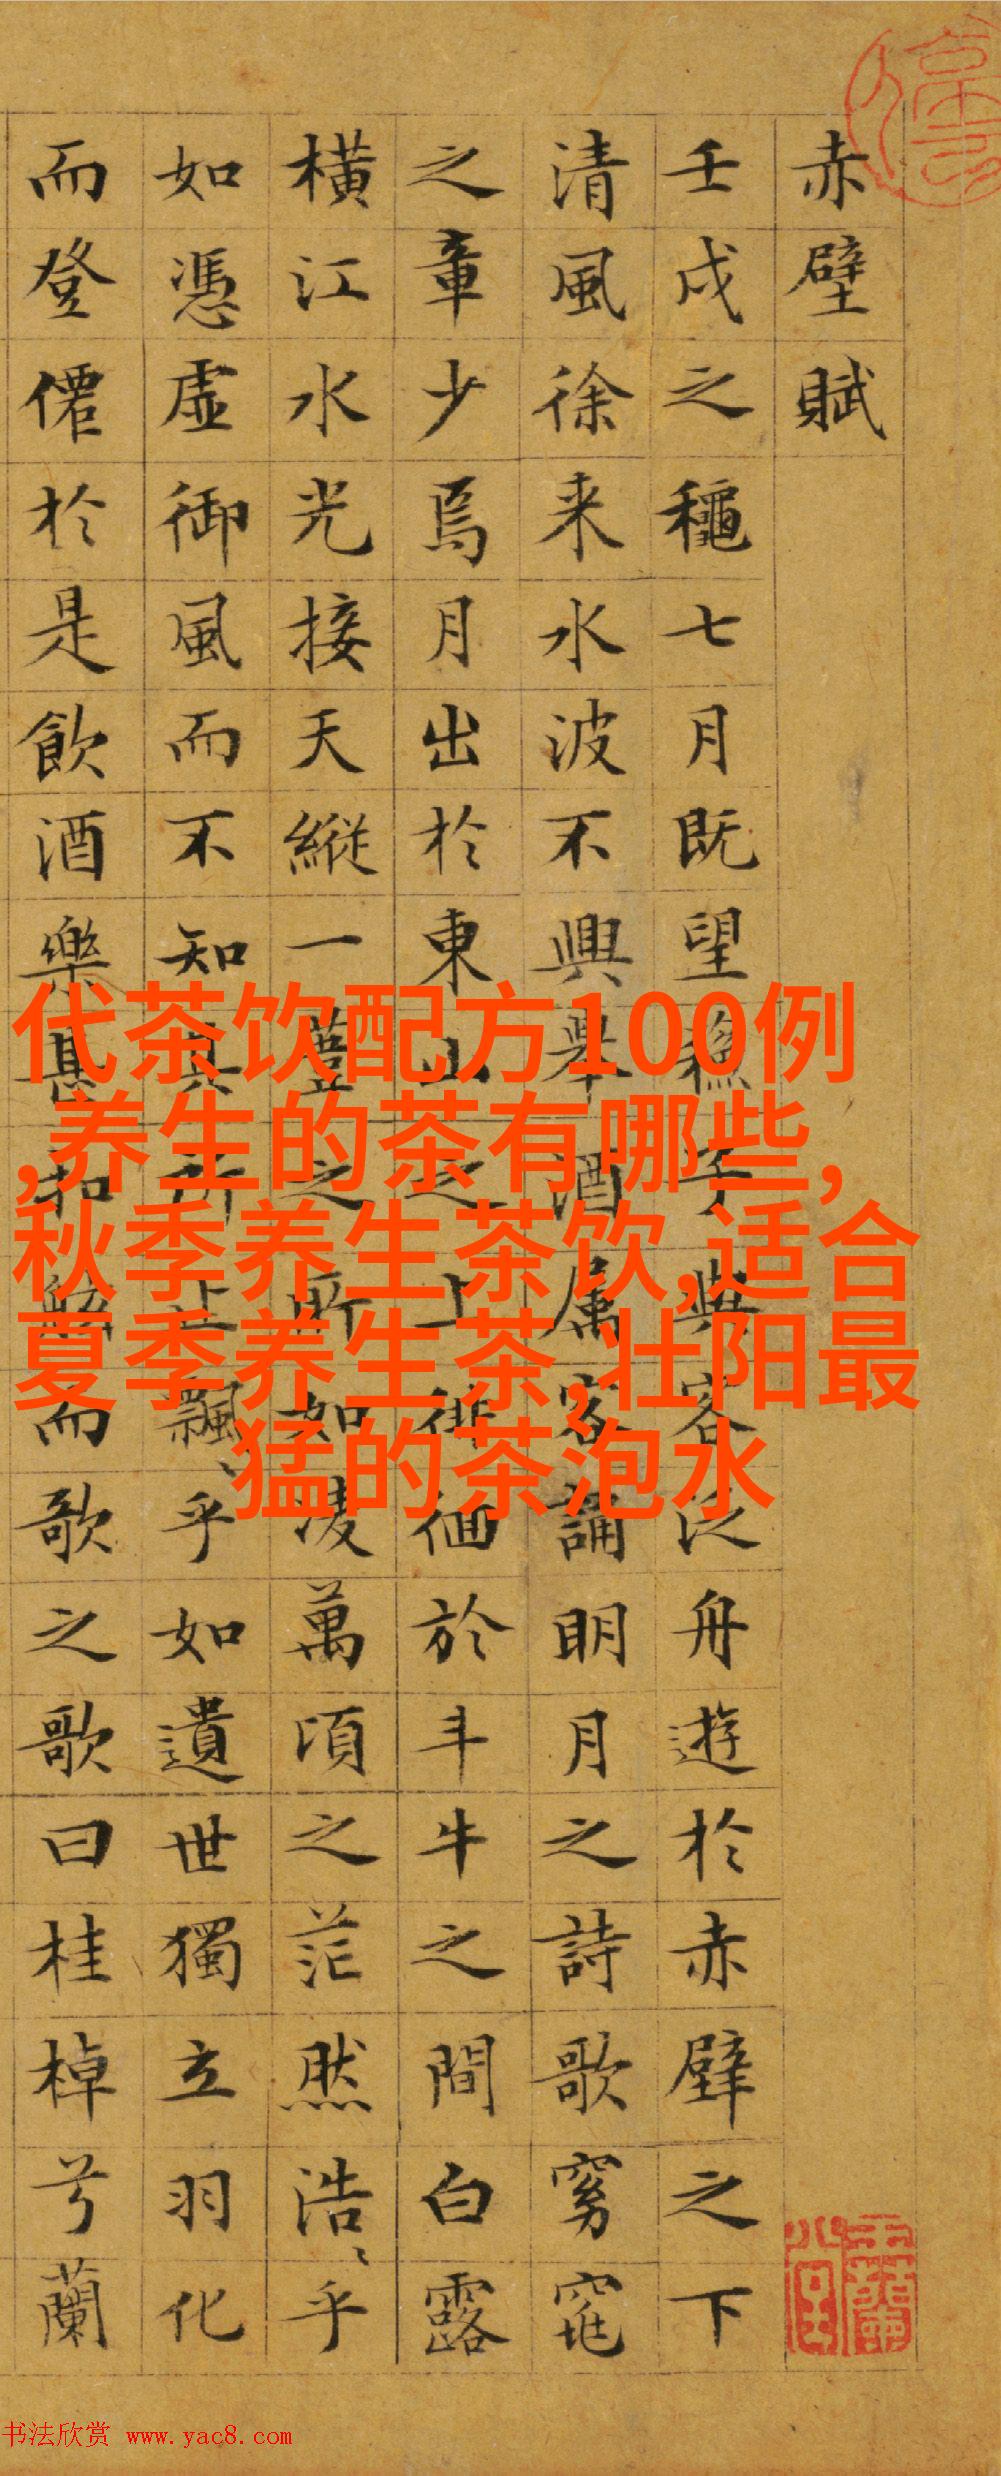 赤壁賦
壬戌之龝七月既望蘇子與客泛舟遊於赤壁之下
清風徐来水波不興舉酒属客誦眀月之詩歌窈窕
之章少焉月出於東山之上徘徊於斗牛之間白露
横江水光接天縱一葦之所如凌萬頃之茫然浩、乎
如憑虚御風而不知其所止飄、乎如遺世獨立羽化
而登僊於是飲酒樂甚扣舷而歌之歌曰桂棹兮蘭
代茶饮配方100例
,养生的茶有哪些,
秋季养生茶饮,适合
夏季养生茶,壮阳最
猛的茶泡水
书法欣赏 www.yac8.com